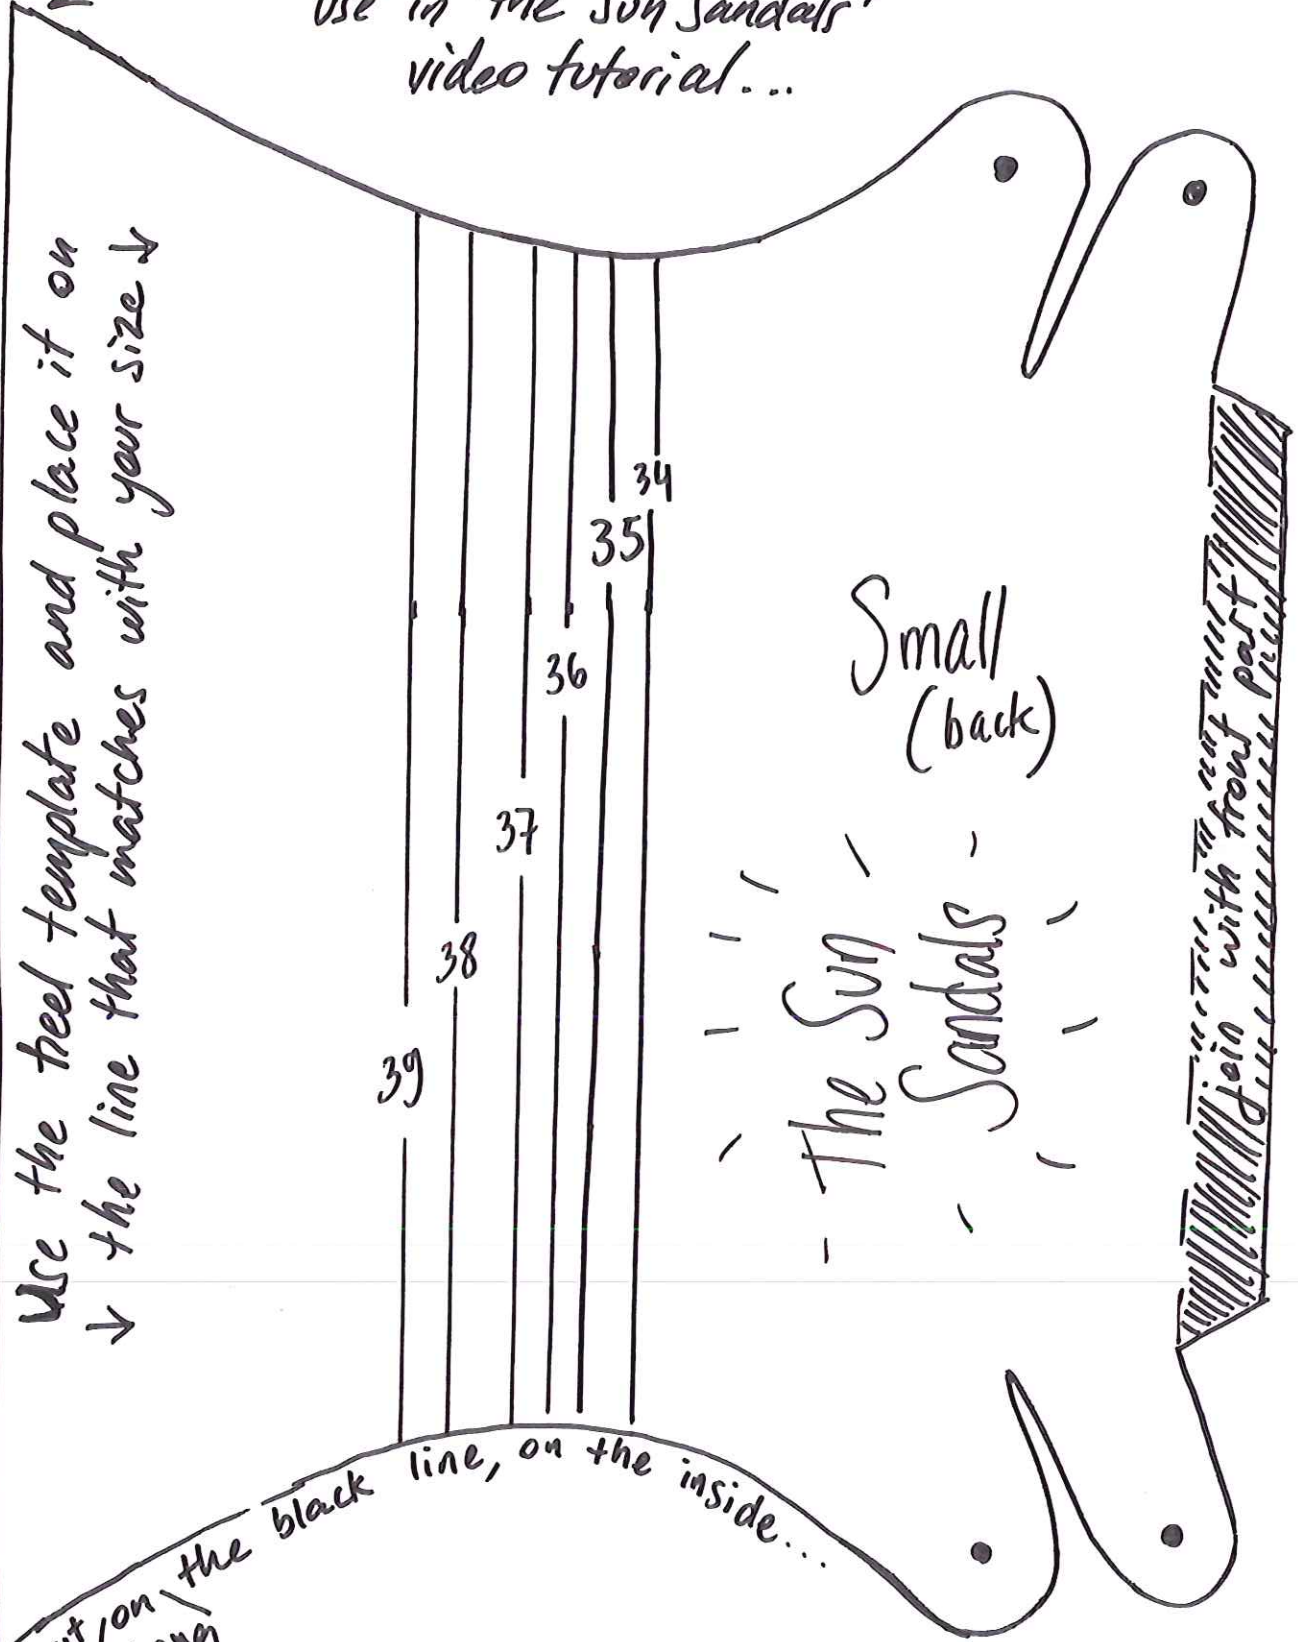 Use in "The Sun Sandals"
video tutorial...
Use the heel template and place it on
↓ the line that matches with your size ↓
34
35
36
37
38
39
Small
(back)
The Sun
Sandals
join with front part
on the black line, on the inside...